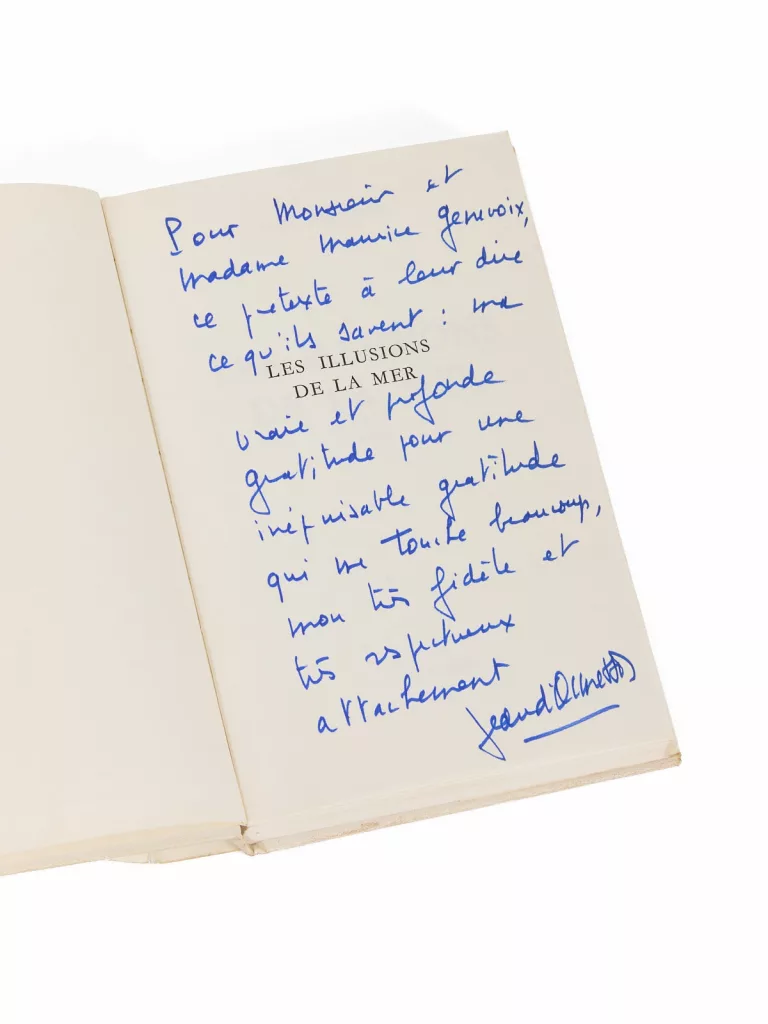 Pour Monsieur et
Madame Maurice Genevoix,
ce prétexte à leur dire
ce qu'ils savent : ma
LES ILLUSIONS
DE LA MER
vraie et profonde
gratitude pour une
inépuisable gratitude
qui me touche beaucoup,
mon très fidèle et
très respectueux
attachement
Jean d'Ormesson